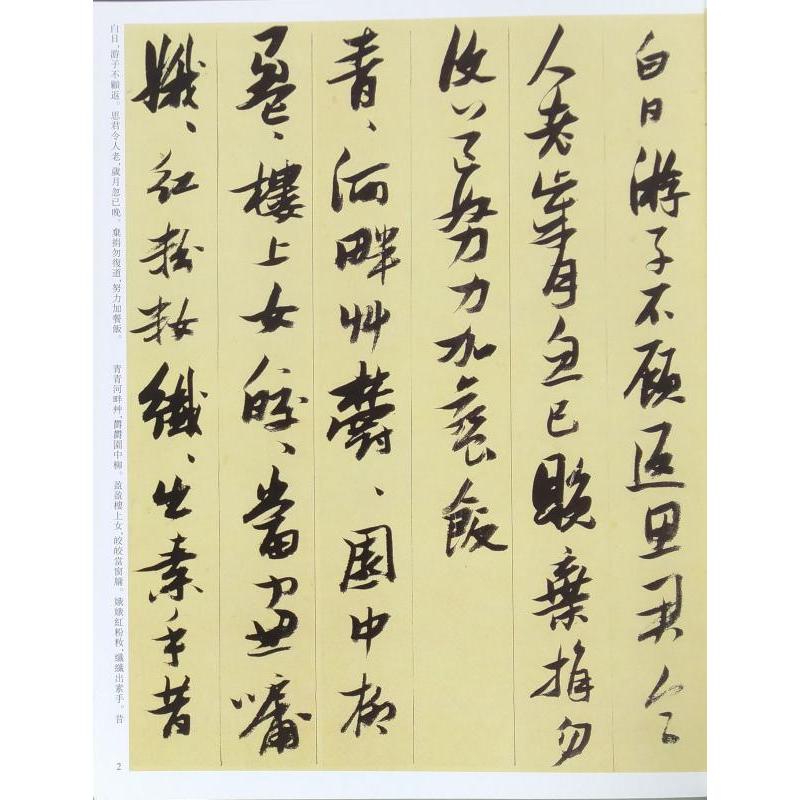 白日游子不顾返思君令
人老岁月忽已晚弃捐勿
复道努力加餐饭
青、河畔艸欝、園中柳
盈、樓上女皎、當窗牖
娥、红粉妆纖、出素手昔
白日,游子不顧返。思君令人老,歲月忽已晚。棄捐勿復道,努力加餐飯。 青青河畔艸,鬱鬱園中柳。盈盈樓上女,皎皎當窗牖。娥娥紅粉妝,纖纖出素手。昔
2